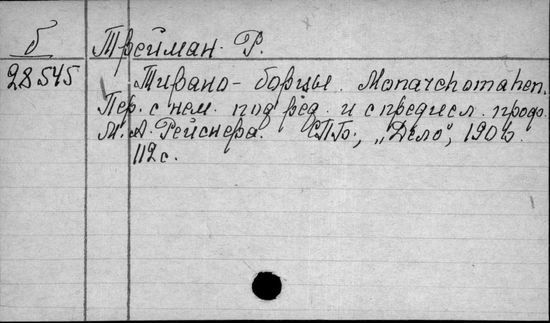 б Трейман Р.
28545 Тирано-борцы. Monarchomahen.
Пер. с нем. под ред. и с предисл. проф.
М. А. Рейснера. СПб., „Дело", 1906.
112 с.